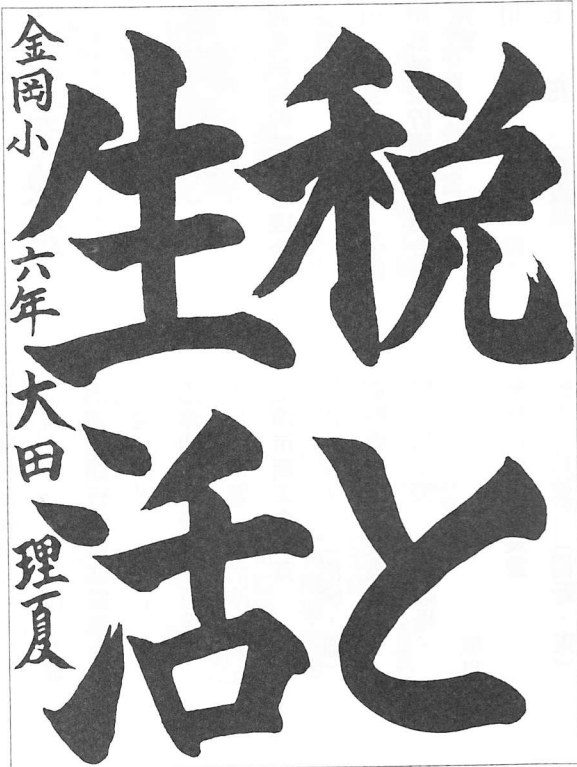 税と
生活
金岡小 六年 大田 理夏